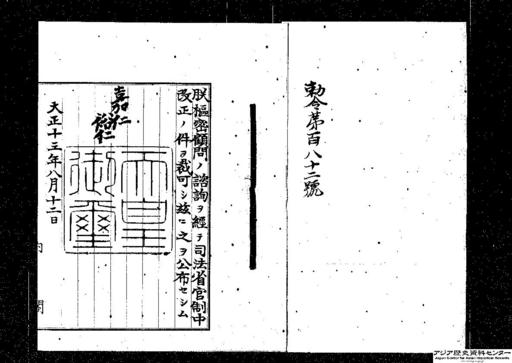 勅令第百八十二號
朕樞密顧問ノ諮詢ヲ經テ司法省官制中
改正ノ件ヲ裁可シ茲ニ之ヲ公布セシム
嘉仁
裕仁
天皇
御璽
大正十三年八月十二日
内 閣
アジア歴史資料センター
Japan Center for Asian Historical Records